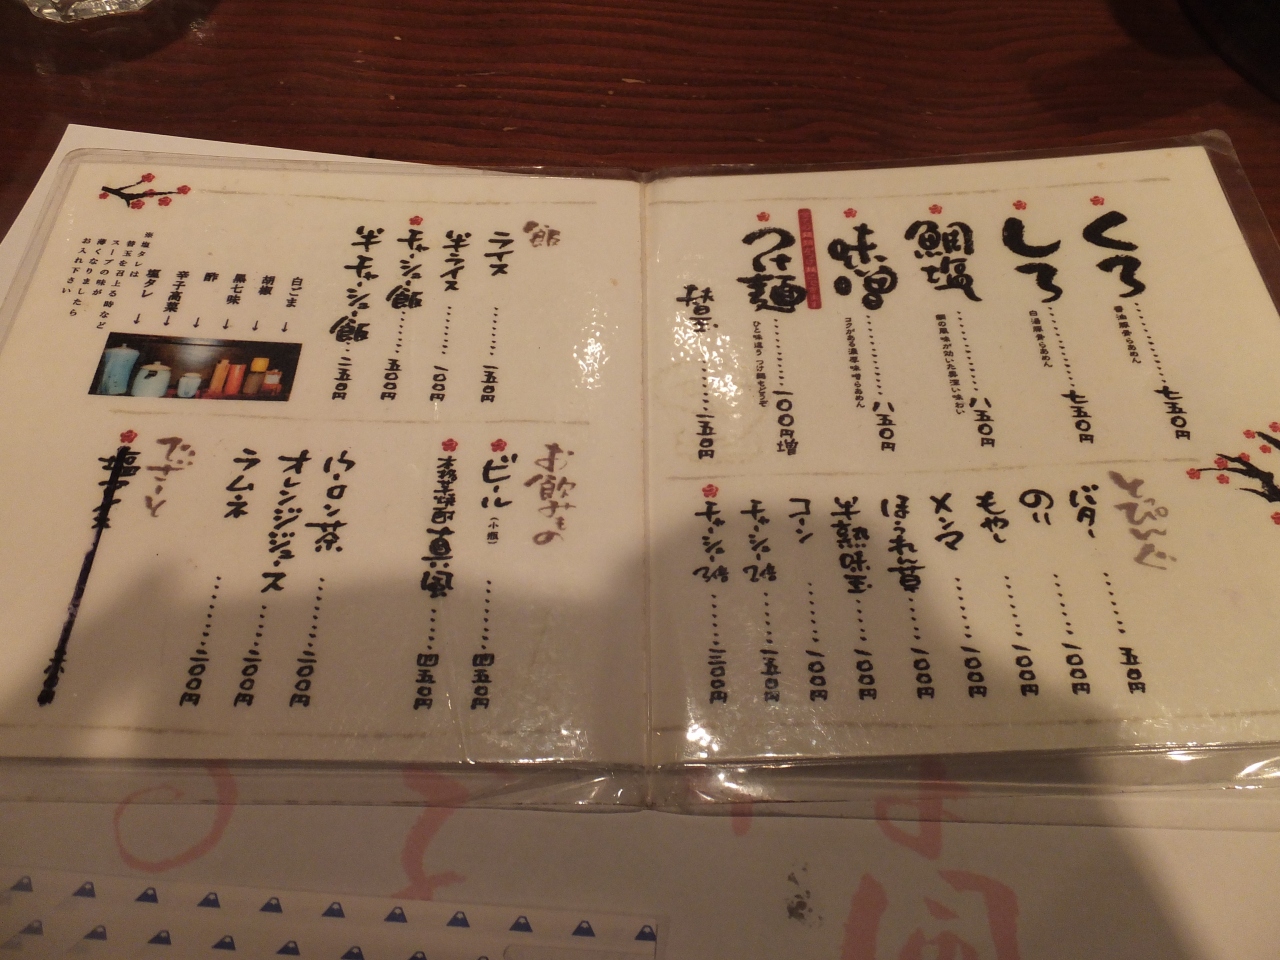 くろ……七五〇円
醤油豚骨らあめん
しろ……七五〇円
白湯豚骨らあめん
鯛塩……八五〇円
鯛の風味が効いた奥深い味わい
味噌……八五〇円
コクがある濃厚味噌らあめん
つけ麺……一〇〇円増
ひと味違うつけ麺をどうぞ
替玉……一五〇円
とっぴんぐ
バター……五〇円
のり……一〇〇円
もやし……一〇〇円
メンマ……一〇〇円
ほうれん草……一〇〇円
半熟味玉……一〇〇円
コーン……一〇〇円
チャーシュー
チャーシュー
飯
ライス……一五〇円
半ライス……一〇〇円
チャーシュー飯
半チャーシュー飯
白ごま
胡椒
黒七味
酢
辛子高菜
塩タレ
※塩タレは
替玉を召上る時など
スープの味が
薄くなりましたら
お入れ下さい
お飲みもの
ビール（小瓶）……四五〇円
……四五〇円
ウーロン茶……二〇〇円
オレンジジュース……二〇〇円
ラムネ……二〇〇円
でざーと